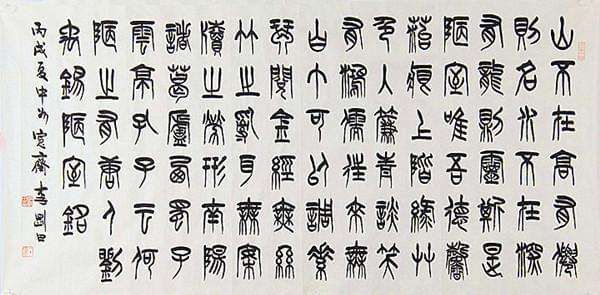 山不在高有僊
則名水不在深
有龍則靈斯是
陋室唯吾德馨
苔痕上階綠艸
色入簾青談笑
有鴻儒往來無
白丁可以調素
琴閱金經無絲
竹之亂耳無案
牘之勞形南陽
諸葛廬西蜀子
雲亭孔子云何
陋之有唐人劉
禹錫陋室銘
丙戌夏中於齋